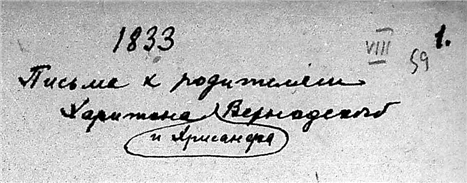 1833 VIII 59 1.
Письма к родителям
Харитона Вернадского
и Хрисанфа